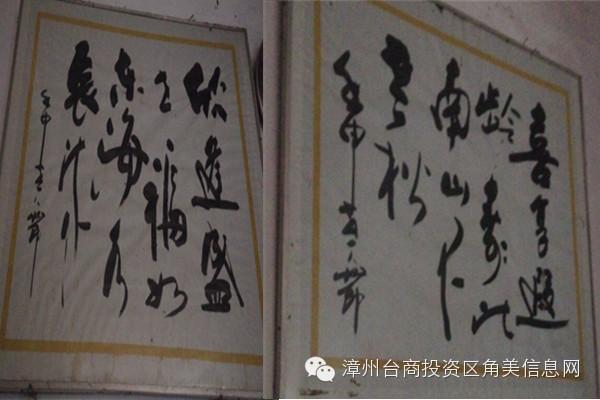 欣逢盛
世福如
东海水
長流
壬申
喜享遐
龄寿比
南山不
老松
壬申
漳州台商投资区角美信息网